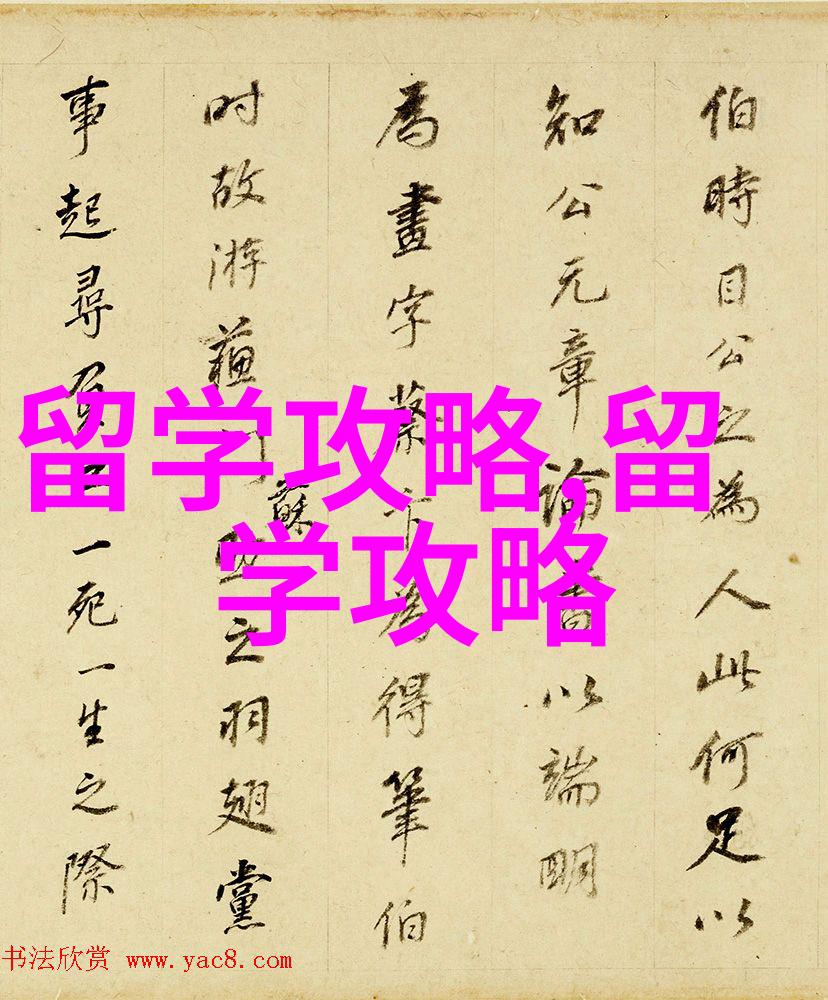 伯時目公之為人此何足以
知公元章論書以端明
為畫字蔡卞為得筆伯
时故游蘓門蘇之羽翅黨
事起尋一死一生之際
留学攻略,留
学攻略
书法欣赏 www.yac8.com